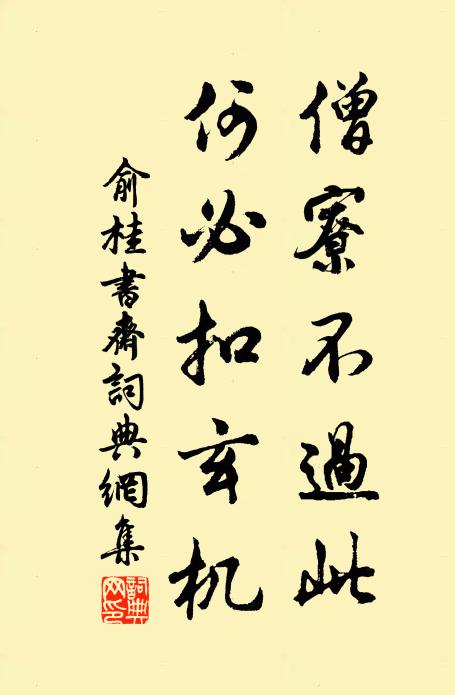 僧寮不過此
何必扣玄机
俞桂書齋詞典網集
詞典网印